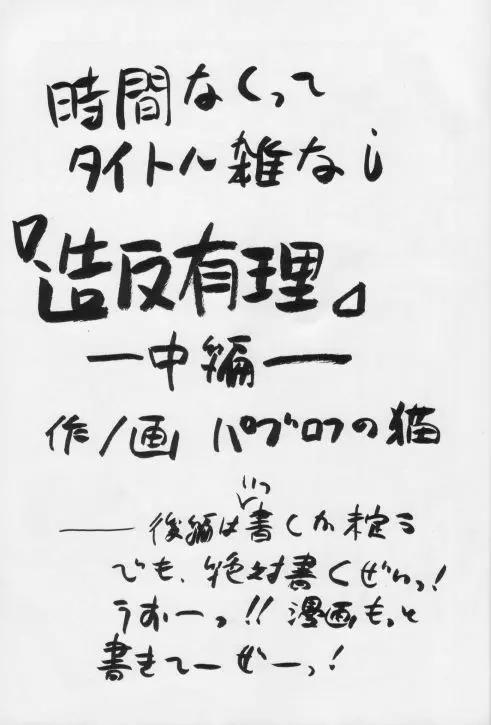 時間なくって
タイトル雑なし
『造反有理』
―中編―
作/画 パブロフの猫
――後編はいつ書くか未定ら
でも、絶対書くぜいっ!
うおーっ!! 漫画もっと
書きてーぜーっ!